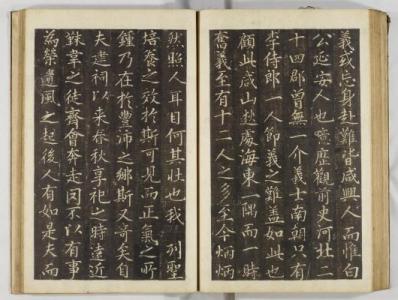 義或忘身赴難皆咸興人而惟白
公延安人也噫歷觀前史河北二
十四郡曾無一介義士南朝只有
李侍郎一人節義之難盖如此也
顧此咸山僻處海東一隅而一時
奮義至有十二人之多至今炳炳
然照人耳目何其壯也我 列聖
培養之效於斯可見而正氣之所
鍾乃在於豊沛之鄉斯又奇矣自
夫建祠以来春秋享祀之時遠近
韎韋之徒齊會奔走罔不以有事
為榮遺風之起後人有如是夫而